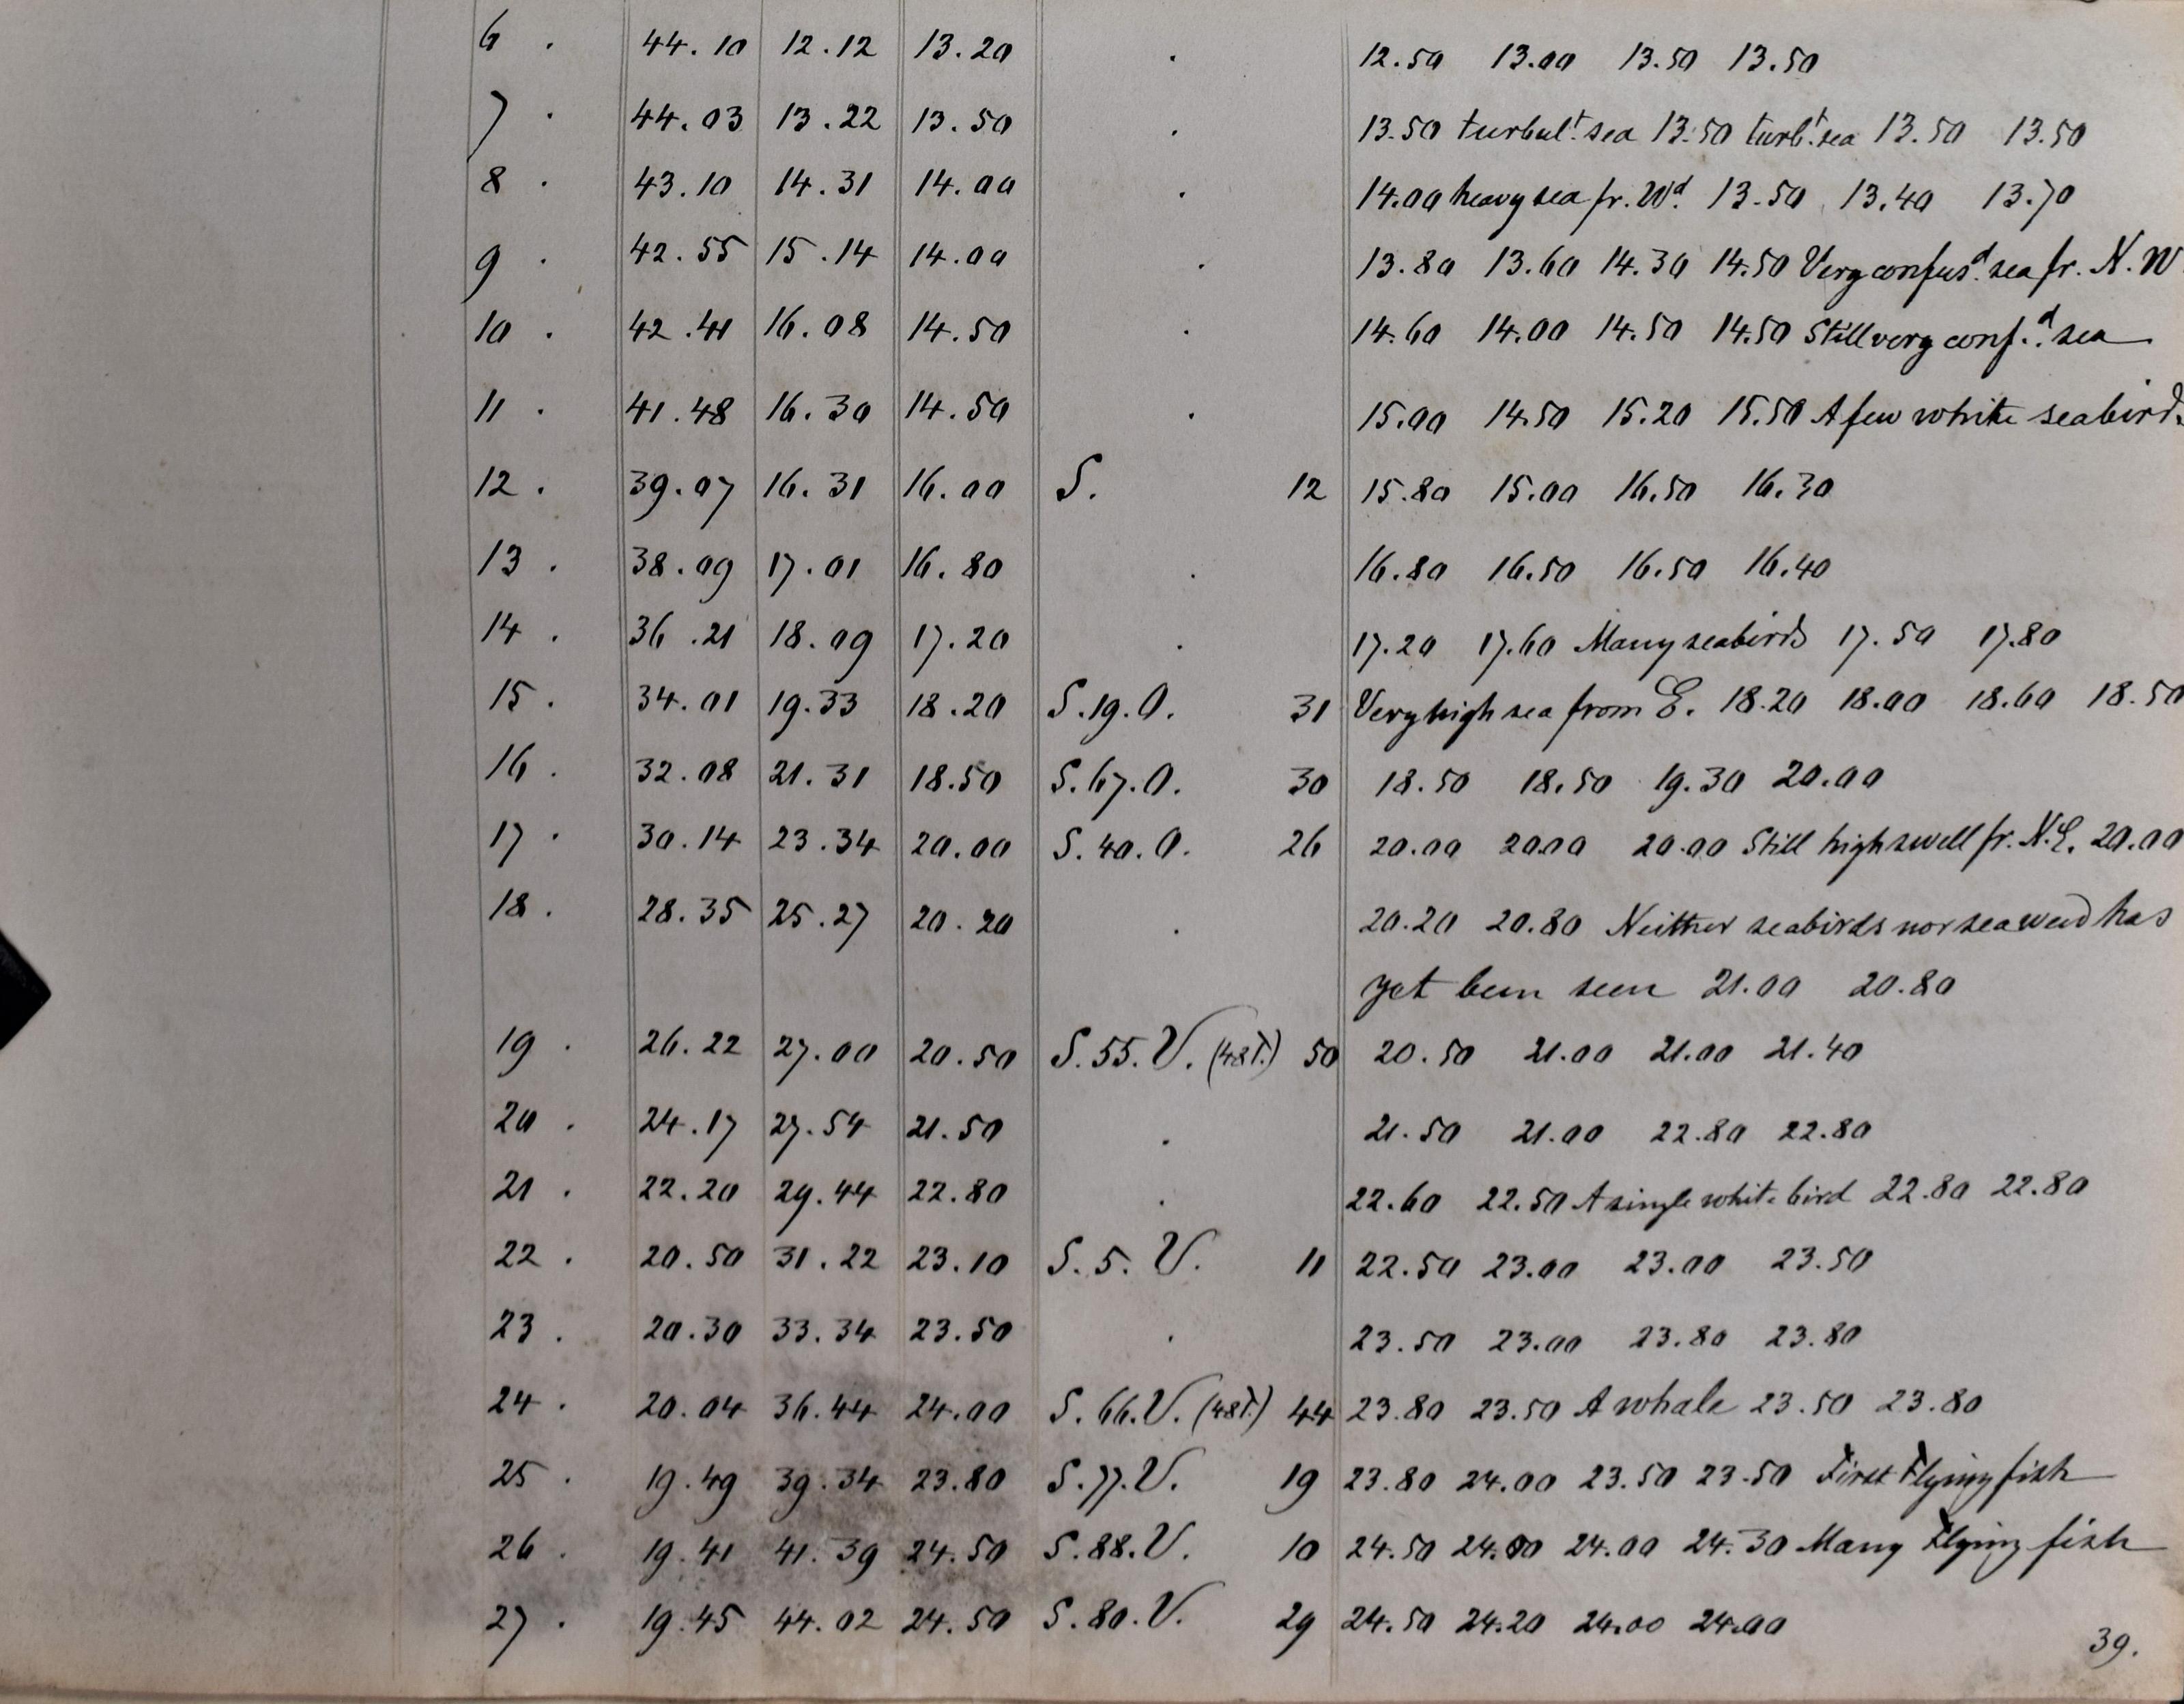 6 . 44.10 12.12 13.20 . 12.50 13.00 13.50 13.50
7 . 44.03 13.22 13.50 . 13.50 turbul.t sea 13.50 turb.t sea 13.50 13.50
8 . 43.10 14.31 14.00 . 14.00 heavy sea fr. W.d 13.50 13.40 13.70
9 . 42.55 15.14 14.00 . 13.80 13.60 14.30 14.50 Very confus.d sea fr. N.W
10 . 42.41 16.08 14.50 . 14.60 14.00 14.50 14.50 Still very conf.d sea
11 . 41.48 16.30 14.50 . 15.00 14.50 15.20 15.50 A few white seabirds
12 . 39.07 16.31 16.00 S. 12 15.80 15.00 16.50 16.30
13 . 38.09 17.01 16.80 . 16.80 16.50 16.50 16.40
14 . 36.21 18.09 17.20 . 17.20 17.60 Many seabirds 17.50 17.80
15 . 34.01 19.33 18.20 S.19.O. 31 Very high sea from E. 18.20 18.00 18.60 18.50
16 . 32.08 21.31 18.50 S.67.O. 30 18.50 18.50 19.30 20.00
17 . 30.14 23.34 20.00 S.40.O. 26 20.00 20.00 20.00 Still high swell fr. N.E. 20.00
18 . 28.35 25.27 20.20 . 20.20 20.80 Neither seabirds nor seaweed has
yet been seen 21.00 20.80
19 . 26.22 27.00 20.50 S.55.V. (48T.) 50 20.50 21.00 21.00 21.40
20 . 24.17 27.54 21.50 . 21.50 21.00 22.80 22.80
21 . 22.20 29.44 22.80 . 22.60 22.50 A single white bird 22.80 22.80
22 . 20.50 31.22 23.10 S.5.V. 11 22.50 23.00 23.00 23.50
23 . 20.30 33.34 23.50 . 23.50 23.00 23.80 23.80
24 . 20.04 36.44 24.00 S.66.V. (48T.) 44 23.80 23.50 A whale 23.50 23.80
25 . 19.49 39.34 23.80 S.77.V. 19 23.80 24.00 23.50 23.50 First Flying fish
26 . 19.41 41.39 24.50 S.88.V. 10 24.50 24.00 24.00 24.30 Many Flying fish
27 . 19.45 44.02 24.50 S.80.V. 29 24.50 24.20 24.00 24.00
39.